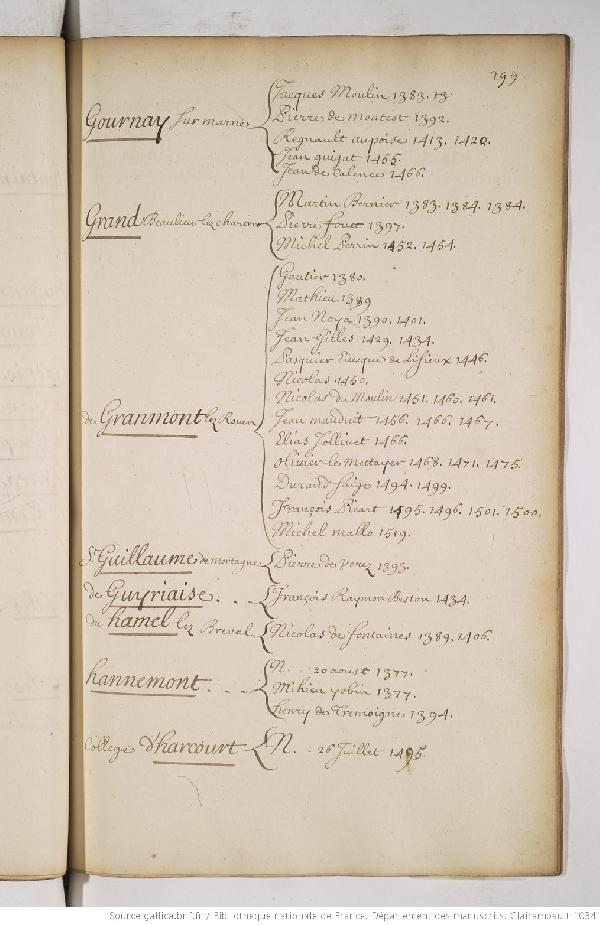 299.
Gournay sur marne
Jacques Moulin 1383. 13.
Pierre de Montcot 1392.
Regnault aupoise 1413. 1420.
Jean guijat 1465.
Jean de Valence 1466.
Grand Beaulieu lez
Martin Bernier 1383. 1384. 1384.
Pierre fouet 1397.
Michel Perrin 1452. 1454.
de Granmont lez Rouen
Gautier 1380.
Mathieu 1389
Jean Noya 1390. 1401.
Jean Gilles 1429. 1434.
Pasquier Evesque de Lisieux 1446.
Nicolas 1450.
Nicolas du Moulin 1451. 1460. 1461.
Jean mauduit 1456. 1466. 1467.
Elias Jollivet 1466.
olivier le Mettayer 1468. 1471. 1475.
Durand saige 1494. 1499.
François Picart 1495. 1496. 1501. 1500.
Michel mallo 1519.
St Guillaume de mortagne
Pierre de Verez 1393.
de Guyriaise. . .
François Raymon Beston 1434.
du hamel lez Breval
Nicolas de fontaines 1389. 1406.
hannemont. . .
N. . . 20 aoust 1377.
Mihieu yobin 1377.
henry de Tremoigne 1394.
College d'harcourt
N. . . 26 Juillet 1495.
Source gallica.bnf.fr / Bibliothèque nationale de France. Département des manuscrits. Clairambault 1034